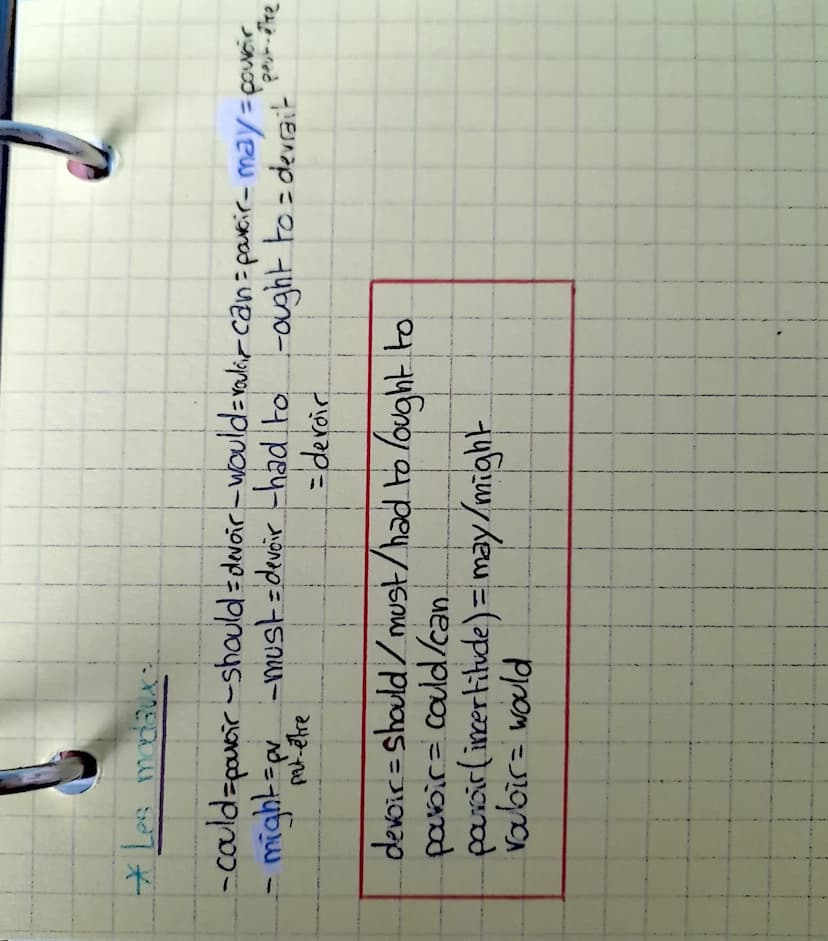 * Les modaux:
-could=pouvoir -should=devoir -would=vouloir-can=pouvoir-may=pouvoir
peut-être
- might=pv -must=devoir -had to -ought to=devrait
put-être =devoir
devoir=should/must/had to/ought to
pouvoir=could/can
pouvoir(incertitude)=may/might
vouloir=would